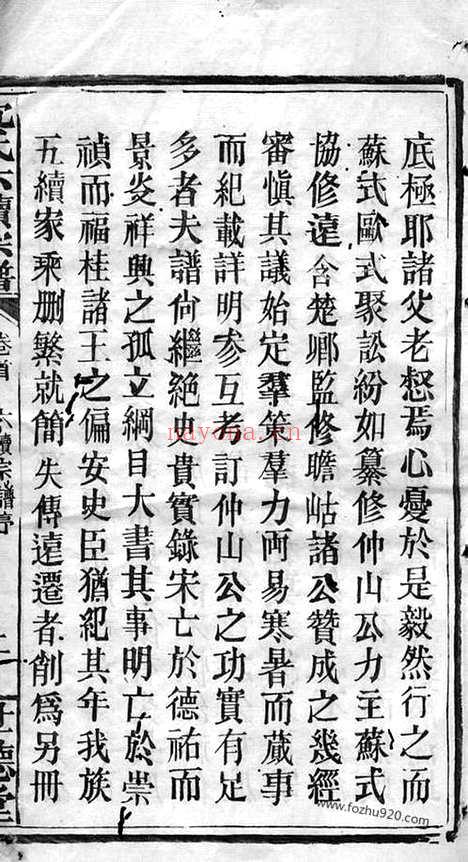 底極耶諸父老惄焉心憂於是毅然行之而
蘇式歐式聚訟紛如纂修仲山公力主蘇式
協修遠含楚卿監修瞻岵諸公贊成之幾經
審愼其議始定羣策羣力兩易寒暑而蕆事
而紀載詳明參互考訂仲山公之功實有足
多者夫譜尙繼絕史貴實錄宋亡於德祐而
景炎祥興之孤立綱目大書其事明亡於崇
禎而福桂諸王之偏安史臣猶紀其年我族
五續家乘刪繁就簡失傳遠遷者削爲另冊
氏六續宗譜
卷首
六續宗譜序
德堂
nayona.cn
www.fozhu920.com